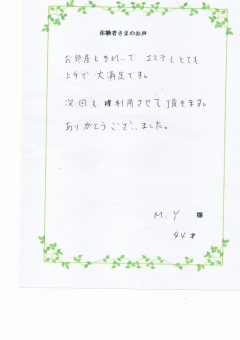 体験者さまのお声
お部屋もきれいで エステもとても
上手で 大満足です。
次回も 利用させて頂きます。
ありがとうございました。
M.Y 様
44才